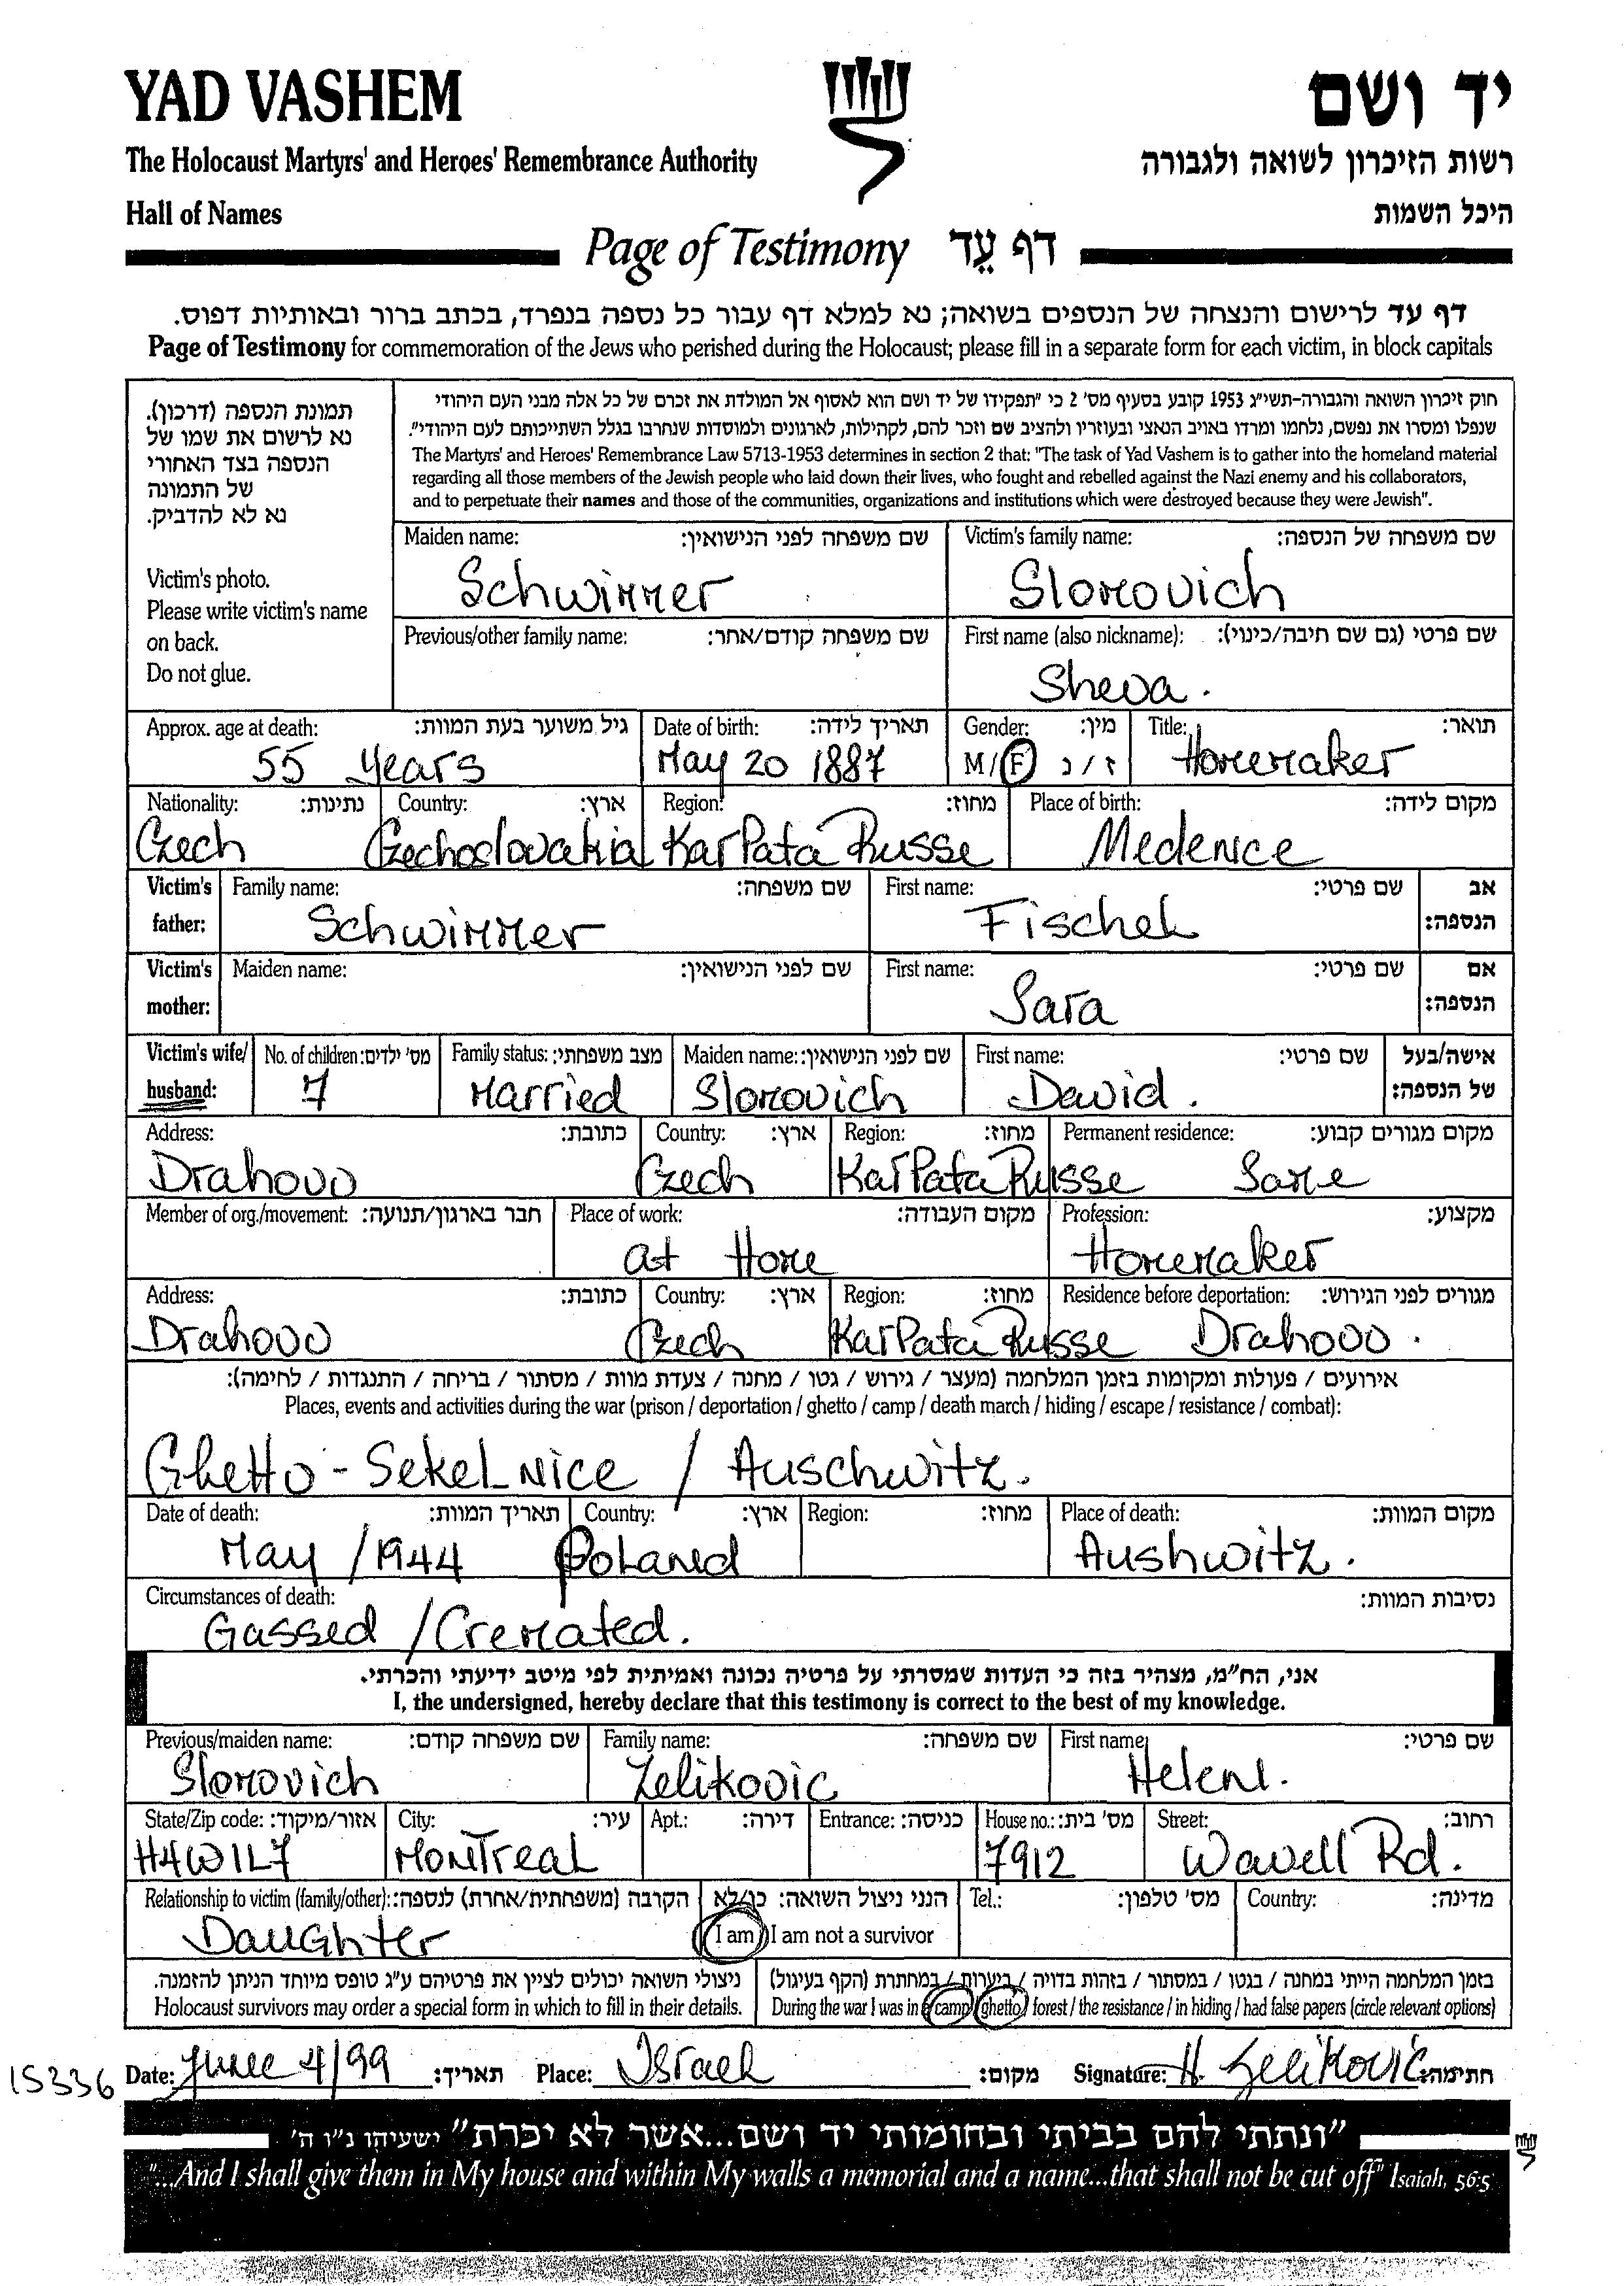 YAD VASHEM
יד ושם
The Holocaust Martyrs' and Heroes' Remembrance Authority
רשות הזיכרון לשואה ולגבורה
Hall of Names
היכל השמות
Page of Testimony דף עֵד
דף עד לרישום והנצחה של הנספים בשואה; נא למלא דף עבור כל נספה בנפרד, בכתב ברור ובאותיות דפוס.
Page of Testimony for commemoration of the Jews who perished during the Holocaust; please fill in a separate form for each victim, in block capitals
תמונת הנספה (דרכון).
נא לרשום את שמו של
הנספה בצד האחורי
של התמונה
נא לא להדביק.
Victim's photo.
Please write victim's name
on back.
Do not glue.
חוק זיכרון השואה והגבורה-תשי"ג 1953 קובע בסעיף מס' 2 כי "תפקידו של יד ושם הוא לאסוף אל המולדת את זכרם של כל אלה מבני העם היהודי
שנפלו ומסרו את נפשם, נלחמו ומרדו באויב הנאצי ובעוזריו ולהציב שם וזכר להם, לקהילות, לארגונים ולמוסדות שנחרבו בגלל השתייכותם לעם היהודי".
The Martyrs' and Heroes' Remembrance Law 5713-1953 determines in section 2 that: "The task of Yad Vashem is to gather into the homeland material
regarding all those members of the Jewish people who laid down their lives, who fought and rebelled against the Nazi enemy and his collaborators,
and to perpetuate their names and those of the communities, organizations and institutions which were destroyed because they were Jewish".
Maiden name: שם משפחה לפני הנישואין: Victim's family name: שם משפחה של הנספה:
Schwimmer Slomovich
Previous/other family name: שם משפחה קודם/אחר: First name (also nickname): שם פרטי (גם שם חיבה/כינוי):
Sheva.
Approx. age at death: גיל משוער בעת המוות: Date of birth: תאריך לידה: Gender: מין: Title: תואר:
55 years May 20 1887 M/F ז/נ Homemaker
Nationality: נתינות: Country: ארץ: Region: מחוז: Place of birth: מקום לידה:
Czech Czechoslovakia KarPata Russe Medenice
Victim's Family name: שם משפחה: First name: שם פרטי: אב
father: Schwimmer Fischel הנספה:
Victim's Maiden name: שם לפני הנישואין: First name: שם פרטי: אם
mother: Sara הנספה:
Victim's wife/ No. of children: מס' ילדים: Family status: מצב משפחתי: Maiden name: שם לפני הנישואין: First name: שם פרטי: אישה/בעל
husband: 7 Married Slomovich David. של הנספה:
Address: כתובת: Country: ארץ: Region: מחוז: Permanent residence: מקום מגורים קבוע:
Drahovo Czech KarPata Russe Same
Member of org./movement: חבר בארגון/תנועה: Place of work: מקום העבודה: Profession: מקצוע:
at Home Homemaker
Address: כתובת: Country: ארץ: Region: מחוז: Residence before deportation: מגורים לפני הגירוש:
Drahovo Czech KarPata Russe Drahovo.
אירועים / פעולות ומקומות בזמן המלחמה (מעצר / גירוש / גטו / מחנה / צעדת מוות / מסתור / בריחה / התנגדות / לחימה):
Places, events and activities during the war (prison / deportation / ghetto / camp / death march / hiding / escape / resistance / combat):
Ghetto - Sekelnice / Auschwitz.
Date of death: תאריך המוות: Country: ארץ: Region: מחוז: Place of death: מקום המוות:
May /1944 Poland Aushwitz.
Circumstances of death: נסיבות המוות:
Gassed / Cremated.
אני, הח"מ, מצהיר בזה כי העדות שמסרתי על פרטיה נכונה ואמיתית לפי מיטב ידיעתי והכרתי.
I, the undersigned, hereby declare that this testimony is correct to the best of my knowledge.
Previous/maiden name: שם משפחה קודם: Family name: שם משפחה: First name: שם פרטי:
Slomovich Zelikovic Helene.
State/Zip code: אזור/מיקוד: City: עיר: Apt.: דירה: Entrance: כניסה: House no.: מס' בית: Street: רחוב:
H4W1L7 Montreal 7912 Wavell Rd.
Relationship to victim (family/other): הקרבה (משפחתית/אחרת) לנספה: הנני ניצול השואה: כן/לא Tel.: מס' טלפון: Country: מדינה:
Daughter I am / I am not a survivor
ניצולי השואה יכולים לציין את פרטיהם ע"ג טופס מיוחד הניתן להזמנה.
Holocaust survivors may order a special form in which to fill in their details.
בזמן המלחמה הייתי במחנה / בגטו / במסתור / בזהות בדויה / ביערות / במחתרת (הקף בעיגול)
During the war I was in a camp / ghetto / forest / the resistance / in hiding / had false papers (circle relevant options)
15336 Date: June 4/99 תאריך: Place: Israel מקום: Signature: H. Zelikovic חתימה:
"ונתתי להם בביתי ובחומותי יד ושם...אשר לא יכרת" ישעיהו נ"ו ה'
"...And I shall give them in My house and within My walls a memorial and a name...that shall not be cut off" Isaiah, 56:5